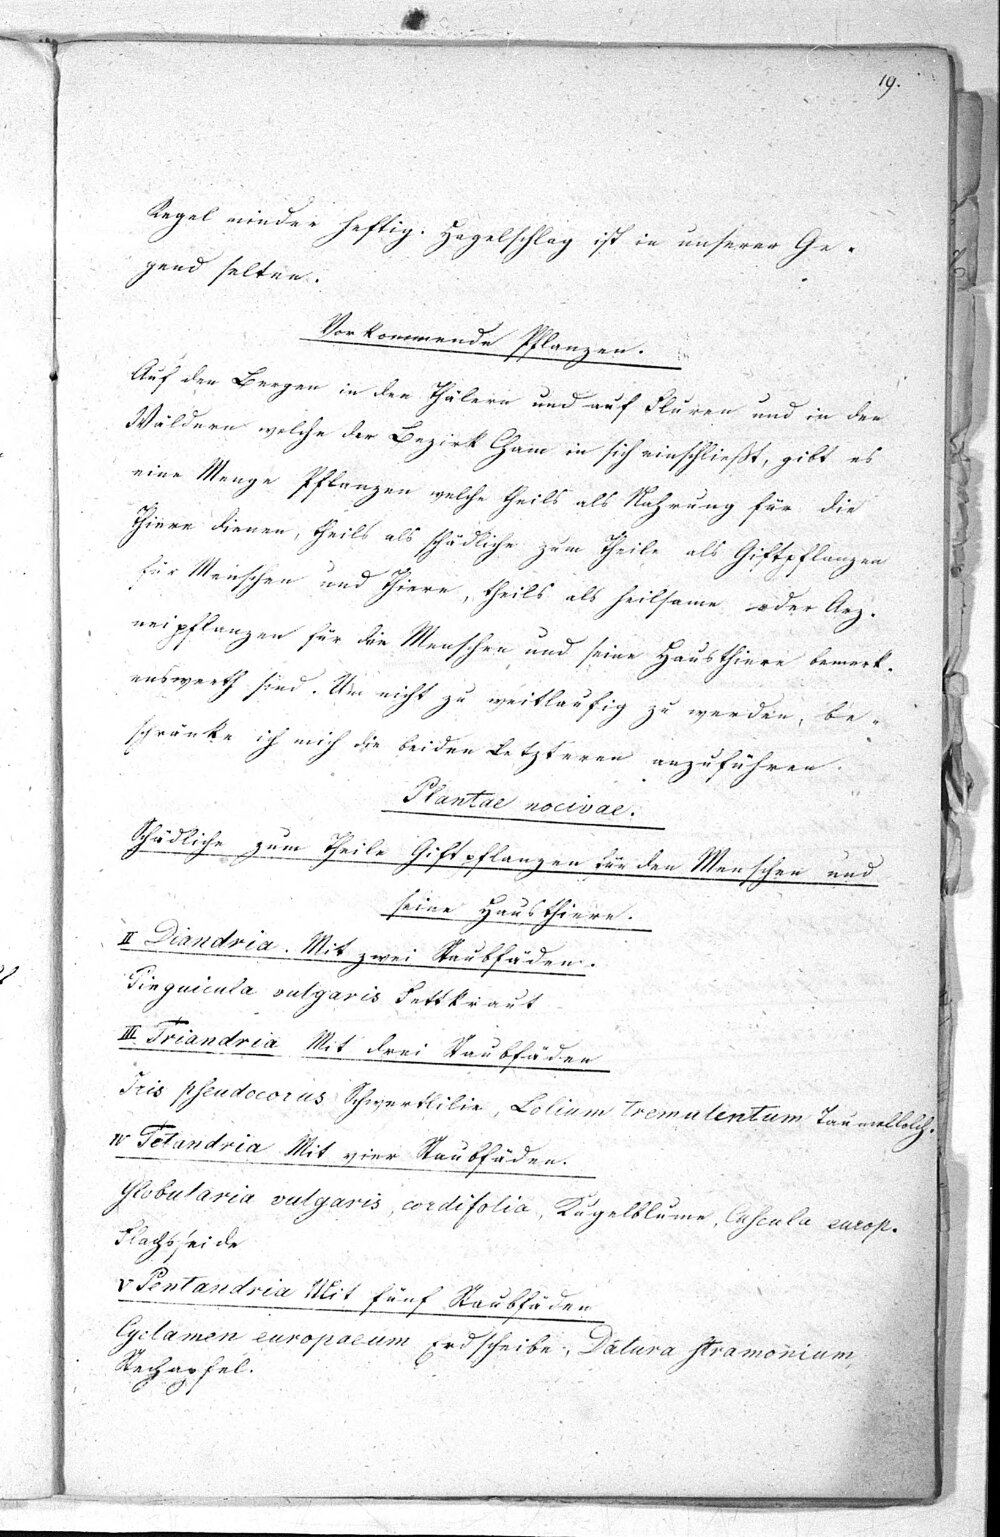 19.
Regel minder heftig. Hagelschlag ist in unserer Ge-
gend selten.
Vorkommende Pflanzen.
Auf den Bergen in den Thälern und auf Fluren und in den
Wäldern welche der Bezirk Cham in sich einschließt, gibt es
eine Menge Pflanzen welche theils als Nahrung für die
Thiere dienen, theils als schädliche zum Theile als Giftpflanzen
für Menschen und Thiere, theils als heilsame oder Arz-
neipflanzen für die Menschen und seine Hausthiere bemerk-
enswerth sind. Um nicht zu weitlaufig zu werden, be-
schränke ich mich die beiden Letzteren anzuführen.
Plantae nocivae.
Schädliche zum Theile Giftpflanzen für den Menschen und
seine Hausthiere.
II Diandria. Mit zwei Staubfäden.
Pinguicula vulgaris Fettkraut
III Triandria Mit drei Staubfäden
Iris pseudocorus Schwertlilie, Lolium tremulentum Taumellolch.
IV Tetandria Mit vier Staubfäden.
Globularia vulgaris, cordifolia, Kugelblume, Cuscula europ.
Flachsseide
V Pentandria Mit fünf Staubfäden
Cyclamen europaeum Erdscheibe, Datura stramonium,
Stechapfel.